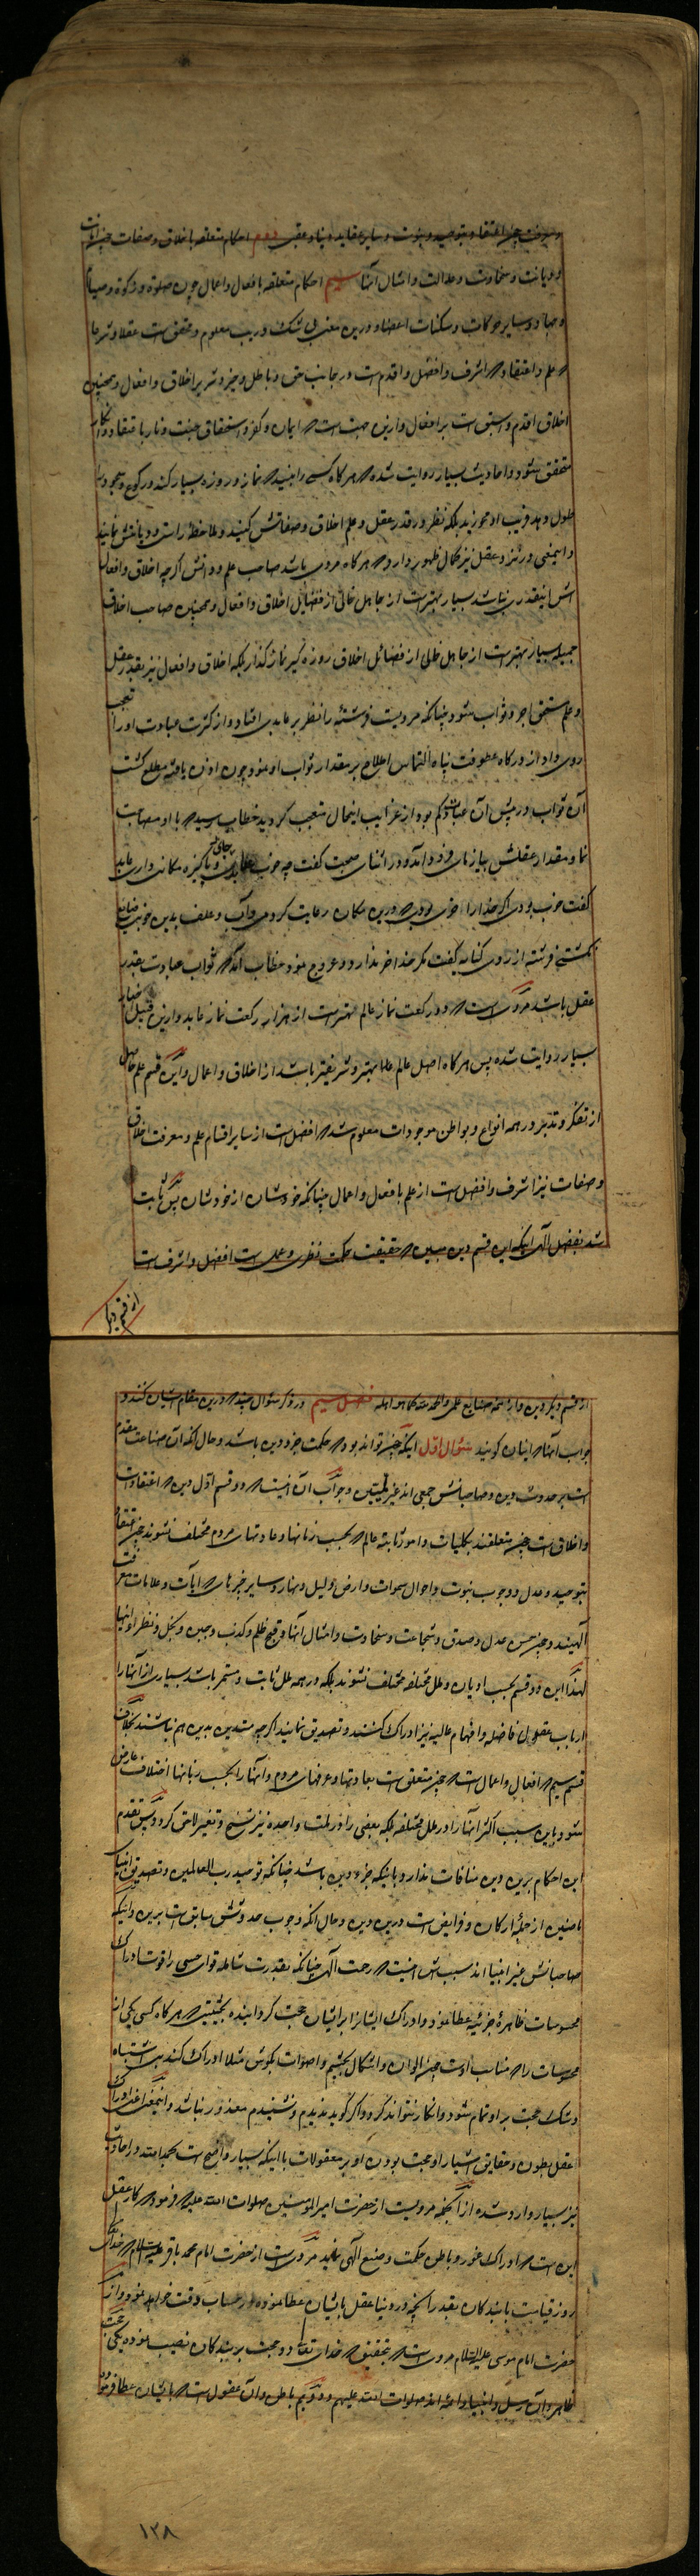 ومعرفت چون اعتقاد بتوحید و نبوت و سایر عقاید دنیا و عقبی دوم احکام متعلقه باخلاق و صفات چون امانت
و دیانت و سخاوت و عدالت و امثال آنها سیم احکام متعلقه بافعال و اعمال چون صلوة و زکوة و صیام
و جهاد و سایر حرکات و سکنات اعضا و درین معنی بی شک و ریب معلوم و محقق است عقلا و شرعا
که علم و اعتقاد اشرف و افضل و اقدم است در جانب حق و باطل و خیر و شر بر اخلاق و افعال و همچنین
اخلاق اقدم و اسبق است بر افعال و ازین جهت است که ایمان و کفر و استحقاق جنت و نار باعتقاد و انکار
متحقق شود و احادیث بسیار روایت شده که هر کاه کسی را ببینید که نماز و روزه بسیار کند و رکوع و سجود را
طول دهد فریب او مخورید بلکه نظر در قدر عقل و علم اخلاق و صفاتش کنید و ملاحظه راستی و دیانتش نمایید
و اینمعنی در نزد عقل نیز کمال ظهور دارد که هر کاه مردی باشد صاحب علم و دانش اکرچه اخلاق و افعال
اش اینقدری نباشد بسیار بهتر است از جاهل خالی از فضایل اخلاق و افعال و همچنین صاحب اخلاق
جمیله بسیار بهتر است از جاهل خالی از فضائل اخلاق روزه کیر نماز کذار بلکه اخلاق و افعال نیز بقدر عقل
و علم مستحق اجر و ثواب شود چنانکه مرویست فرشتئه را نظر بر عابدی افتاد و از کثرت عبادت او را تعجب
روی داد از درکاه عطوفت پناه التماس اطلاع بر مقدار ثواب او نمود چون اذن یافته مطلع کشت
آن ثواب در پیش آن عبادت کم بود از غرایب اینحال متعجب کردید خطاب رسید که با او مصاحبت
نما و مقدار عقلش بیازمای فرود آمد و در اثنای صحبت کفت چه خوب جای و پاکیزه مکانی داری عابد
کفت خوب بودی اکر خدا را خری بودی که درین مکان رعایت کردمی و آب و علف بدین خوبی ضایع
نکشتی فرشته از روی کنایه کفت مکر خدا خر ندارد و عروج نمود خطاب آمد که ثواب عبادت بقدر
عقل باشد مرویست که دو رکعت نماز عالم بهتر است از هزار رکعت نماز عابد و ازین قبیل اخبار
بسیار روایت شده پس هر کاه اصل عالم علما بهتر و شریفتر باشد از اخلاق و اعمال و این قسم علم حاصل
از تفکر و تدبر در همه انواع و بواطن موجودات معلوم شد که افضل است از سایر اقسام علم و معرفت اخلاق
و صفات نیز اشرف و افضل است از علم بافعال و اعمال چنانکه خودشان از خودشان پس ثابت
شد بفضل الهی اینکه این قسم دین مبین که حقیقت حکمت نظری و عملی است افضل و اشرف است
از قسم دیکر
از قسم دیکر دین و از همه صنایع علمی و الحمد لله کما هو اهله فصل سیم در ذکر سؤالی چند که درین مقام ایشان کنند و
جواب آنها که اینان کویند سؤال اول اینکه چون تواند بود که حکمت جزو دین باشد و حال آنکه آن صناعت مقدم
است بر حدوث دین و صاحبانش جمعی اند غیر ملتیین و جواب آن اینست که دو قسم اول دین که اعتقادات
و اخلاق است چون متعلقند بکلیات و امور ثابته عالم که بحسب زمانها و عادتهای مردم مختلف نشوند چون اعتقاد
بتوحید و عدل و وجوب نبوت و احوال سموات و ارض و لیل و نهار و سایر چیزهای که آیات و علامات معرفت
آلهیند و چون حسن عدل و صدق و شجاعت و سخاوت و امثال آنها و قبح ظلم و کذب و جبن و بخل و نظرا و اینها
لهذا این دو قسم بحسب ادیان و ملل مختلفه مختلف نشوند بلکه در همه ملل ثابت و مستمر باشد بسیاری از آنها را
ارباب عقول فاضله و افهام عالیه نیز ادراک کنند و تصدیق نمایند اکرچه متدین بدین هم نباشند بخلاف
قسم سیم که افعال و اعمال است که چون متعلق است بعادتها و عرفهای مردم و آنها را بحسب زمانها اختلاف عارض
شود باین سبب اکثر آنها را در ملل مختلفه بلکه بعضی را در ملت واحده نیز نسخ و تغییر لاحق کردد پس تقدم
این احکام برین دین منافات ندارد باینکه جزء دین باشد چنانکه توحید رب العالمین و تصدیق انبیاء
ماضین از جمله ارکان و فرایض است درین دین و حال آنکه وجوب حدوثش سابق است برین و اینکه
صاحبانش غیر انبیا اند سبب اش اینست که رحمت آلهی چنانکه بقدرت شامله قوای حسی را قوت ادراک
محسوسات ظاهرهٔ جزئیه عطا نمود و ادراک ایشانرا بر ایشان حجت کردانیده بحیثیتی که هر کاه کسی یکی از
محسوسات را که مناسب اوست چون الوان و اشکال بچشم و اصوات بکوش مثلا ادراک کند بی اشتباه
و شک حجت بر او تمام شود و انکار نتواند کرد و اکر کوید ندیدم و نشنیدم معذور نباشد و اینمعنی اعنی ادراک
عقل بطون و حقایق اشیا را و حجت بودن او بر معقولات با اینکه بسیار واضح است بحمد الله در احادیث
نیز بسیار وارد شده از آنجمله مرویست از حضرت امیر المؤمنین صلوات الله علیه که فرمود که کار عقل
این است که ادراک غور و باطن حکمت و صنع آلهی نماید مرویست از حضرت امام محمد باقر علیه السلام که خدای
روز قیامت با بندکان بقدر آنچه در دنیا عقل بایشان عطا نموده در حساب دقت خواهد نمود و از
حضرت امام موسی علیه السلام مرویست که بتحقیق که خدای تعالی دو حجت بر بندکان نصیب نموده یکی حجت
ظاهر و آن رسل و انبیا و ائمه اند صلوات الله علیهم و دویم باطن و آن عقول است که بایشان عطا فرمود
۱۳۸